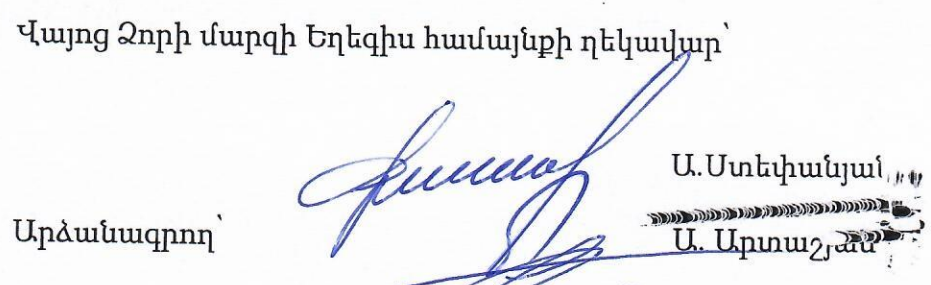 Վայոց Ձորի մարզի Եղեգիս համայնքի ղեկավար՝
Ա.Ստեփանյան
Արձանագրող՝
Ա. Արտաշյան